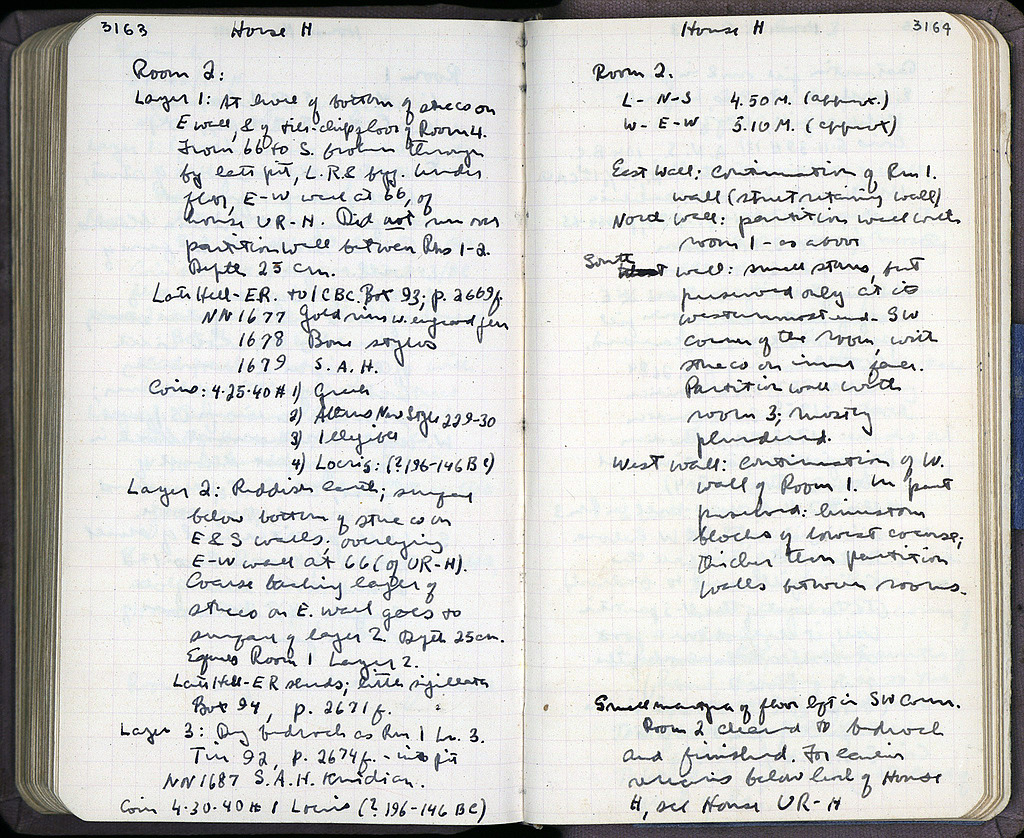 3163 House H
Room 2:
Layer 1: At level of bottom of stucco on
E wall, & of tile-chip floor of Room 4.
From 66 to S. broken through
by late pit, L.R & Byz. Under
floor, E-W wall at 66, of
house UR-H. Did not run over
partition wall between Rms 1-2.
Depth 25 cm.
Late Hell-ER. to 1 C BC. Box 93; p. 2669f.
NN 1677 Gold ring w. engraved gem
1678 Bone stylus
1679 S.A.H.
Coins: 4-25-40 # 1) Greek
2) Athens New Style 229-30
3) Illegible
4) Locris: (?196-146 BC)
Layer 2: Reddish earth; surface
below bottom of stucco on
E & S walls; overlying
E-W wall at 66 (of UR-H).
Coarse backing layer of
stucco on E. wall goes to
surface of layer 2. Depth 25 cm.
Equals Room 1 Layer 2.
Late Hell-ER sherds; little sigillata
Box 94, p. 2671f.
Layer 3: Dug bedrock as Rm 1 Lr. 3.
Tin 92, p. 2674f. - into pit
NN 1687 S.A.H. Knidian.
Coin 4-30-40 # 1 Locris (?196-146 BC)
House H 3164
Room 2.
L- N-S 4.50 M. (approx.)
W- E-W 3.10 M. (approx)
East Wall: Continuation of Rm 1.
wall (street retaining wall)
North wall: partition wall with
room 1 - as above
South wall: small stones, but
preserved only at its
westernmost end - SW
corner of the room, with
stucco on inner face.
Partition wall with
room 3; mostly
plundered.
West wall: Continuation of W.
wall of Room 1. In part
preserved: limestone
blocks of lowest course;
thicker than partition
walls between rooms.
Small margin of floor left in SW corner.
Room 2 cleared to bedrock
and finished. For earlier
remains below level of House
H, see House UR-H